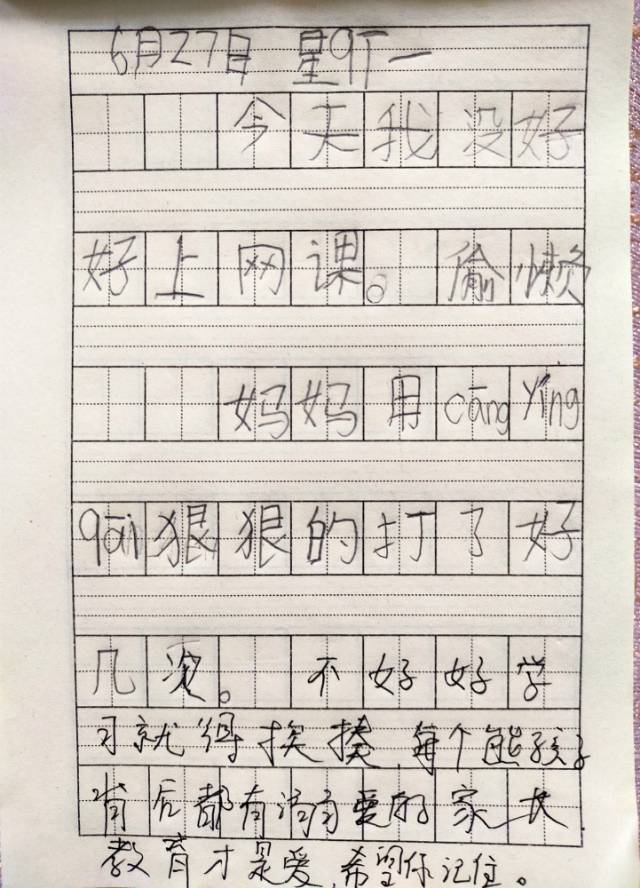 6月27日 星9丁一
今天我没好
好上网课。偷懒
妈妈用cāng yíng
qāi狠狠的打了好
几次。不好好学
习就得挨揍,每个熊孩子
背后都有溺爱的家长
教育才是爱,希望你记住。